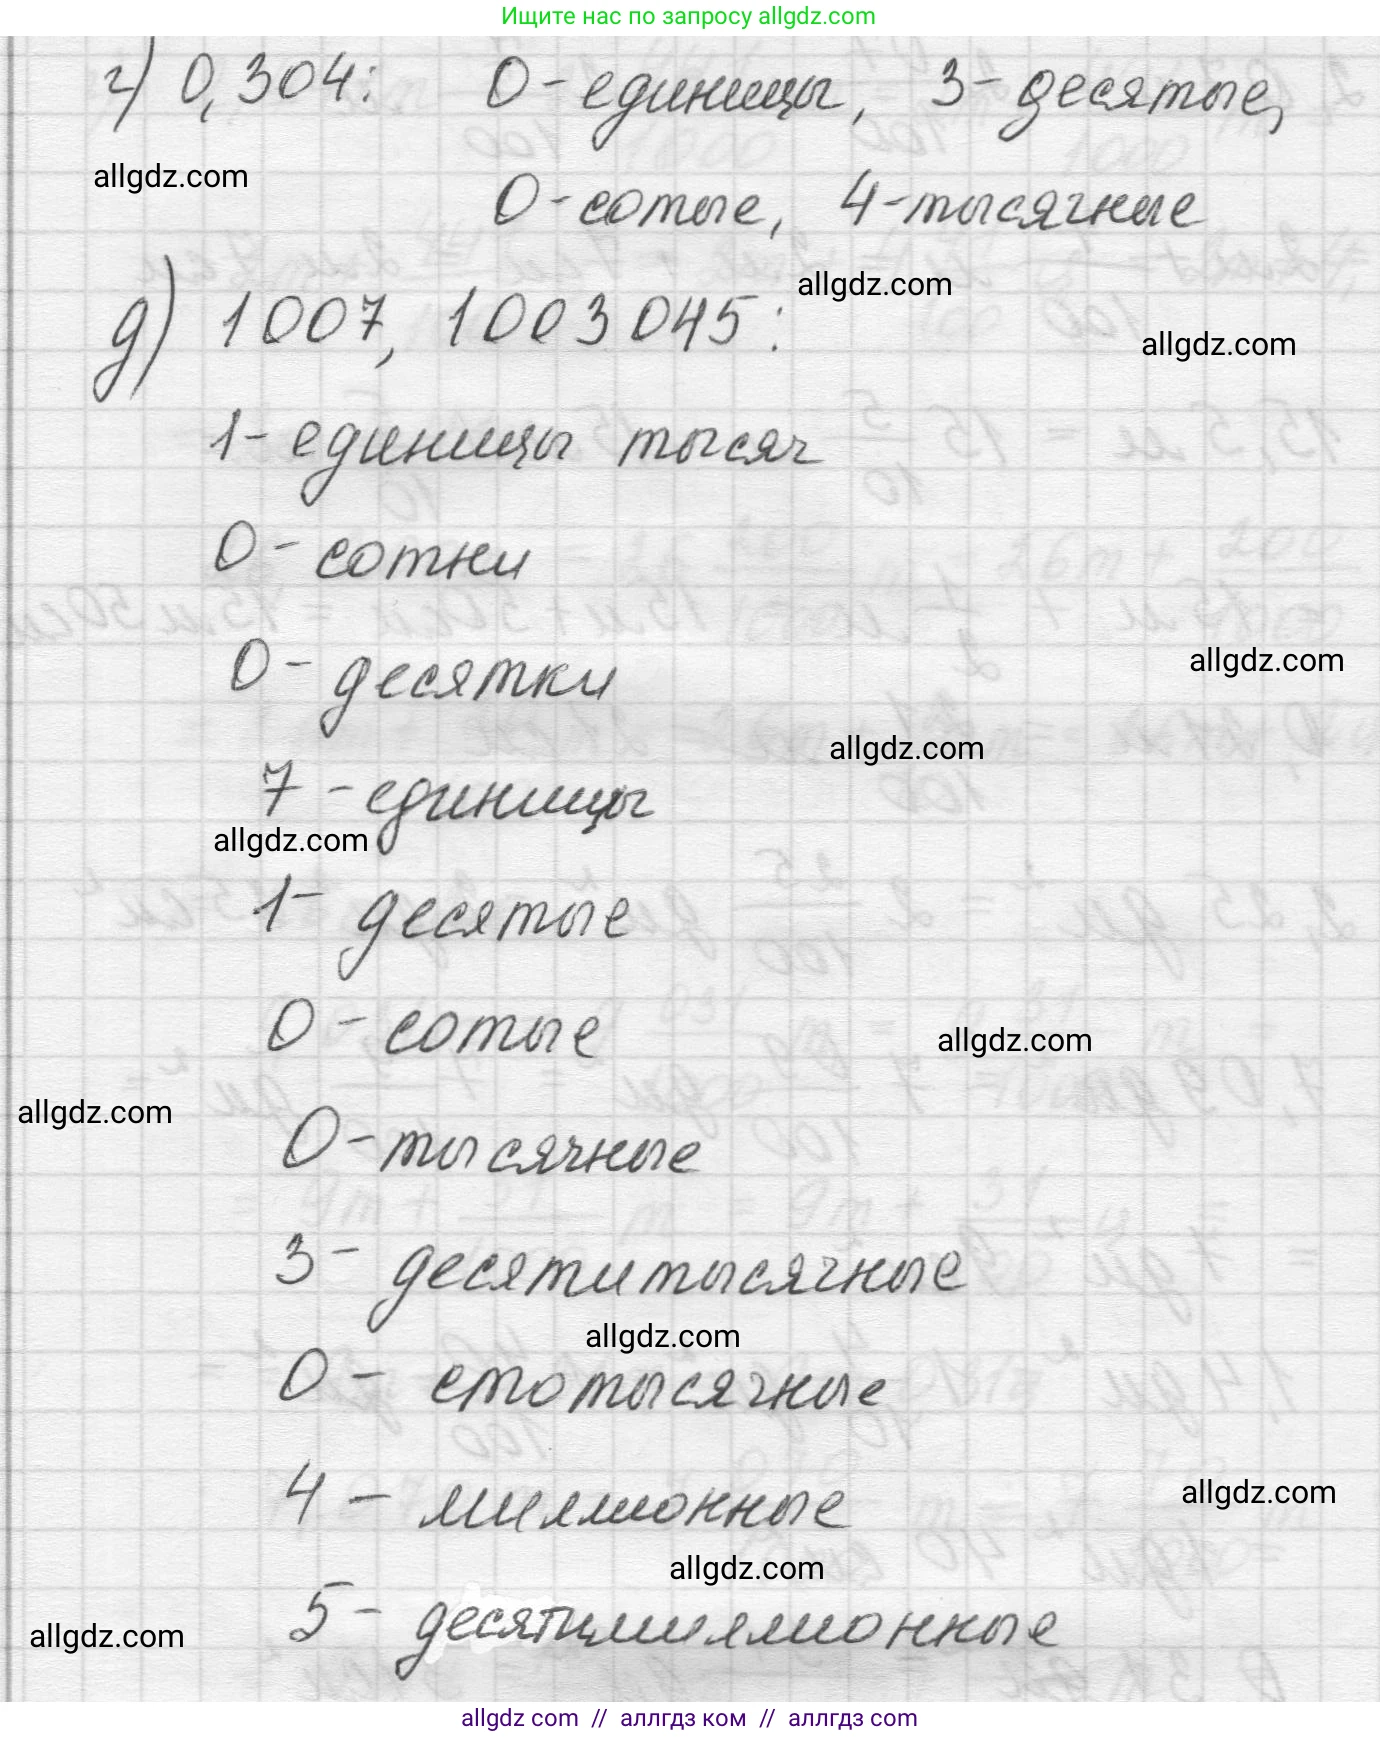 Ищите нас по запросу allgdz.com
г) 0,304: 0 - единицы, 3 - десятые,
allgdz.com
0 - сотые, 4 - тысячные
allgdz.com
д) 1007, 1003045:
allgdz.com
1 - единицы тысяч
0 - сотни
0 - десятки
allgdz.com
allgdz.com
7 - единицы
allgdz.com
1 - десятые
0 - сотые
allgdz.com
allgdz.com
0 - тысячные
3 - десятитысячные
allgdz.com
0 - стотысячные
4 - миллионные
allgdz.com
allgdz.com
5 - десятимиллионные
allgdz.com
allgdz com // аллгдз ком // аллгдз com